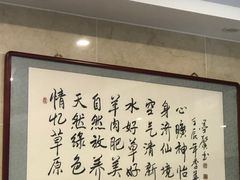 情忆草原
天然绿色
自然放养
羊肉肥美
水好草好
空气清新
身济仙境
心旷神怡
壬辰年季
书